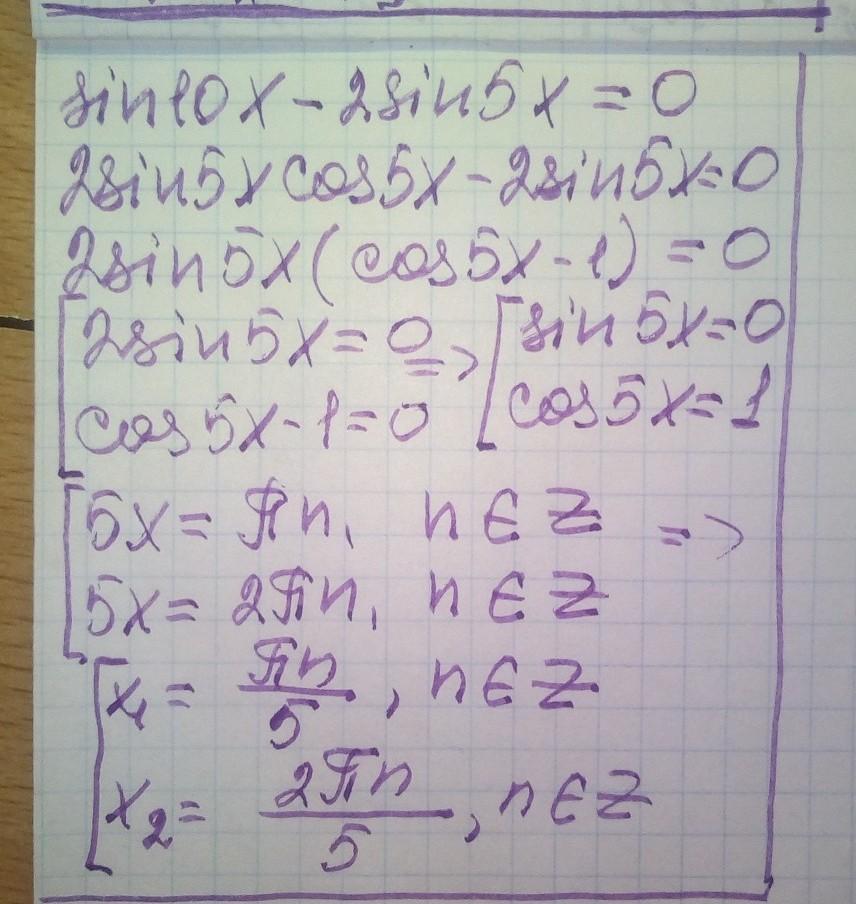 sin10x - 2sin5x = 0
2sin5x cos5x - 2sin5x = 0
2sin5x(cos5x - 1) = 0
[2sin5x = 0 => [sin5x = 0
cos5x - 1 = 0 cos5x = 1
[5x = πn, n ∈ Z =>
5x = 2πn, n ∈ Z
[x₁ = πn/5, n ∈ Z
x₂ = 2πn/5, n ∈ Z